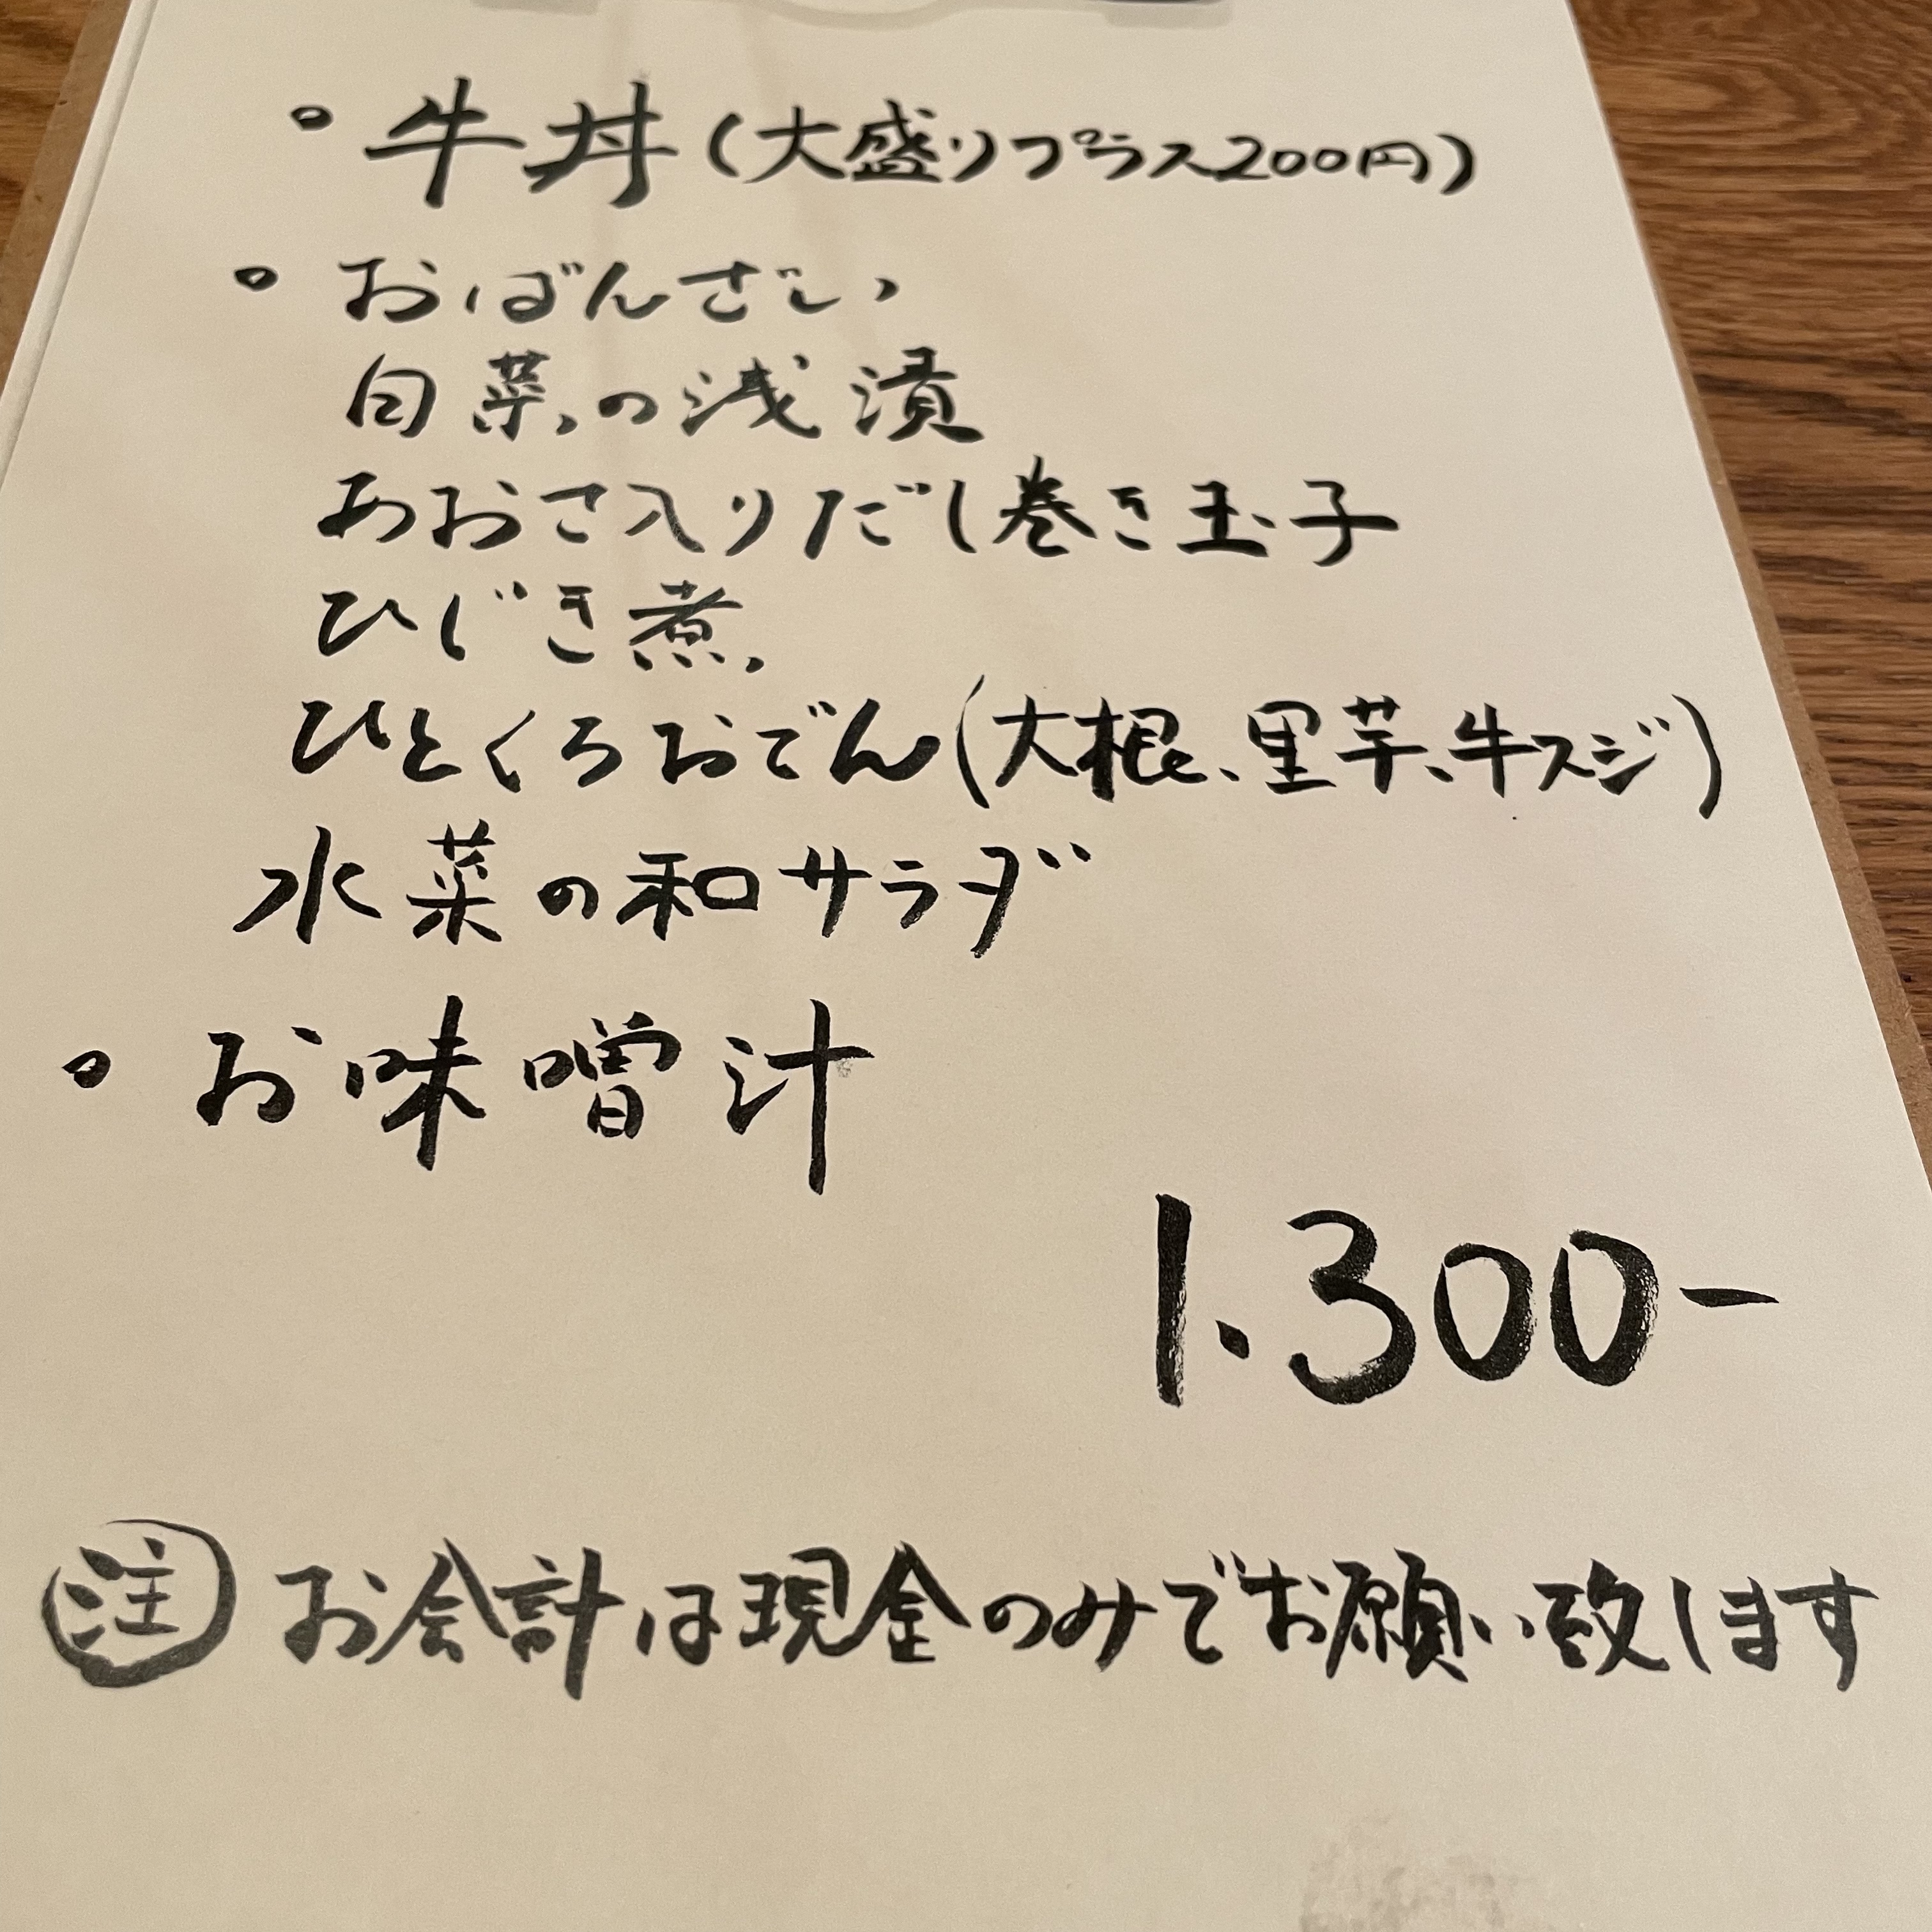 。牛丼(大盛りプラス200円)
。おばんざい
白菜の浅漬
あおさ入りだし巻き玉子
ひじき煮
ひとくちおでん(大根、里芋、牛スジ)
水菜の和サラダ
。お味噌汁
1.300-
注 お会計は現金のみでお願い致します